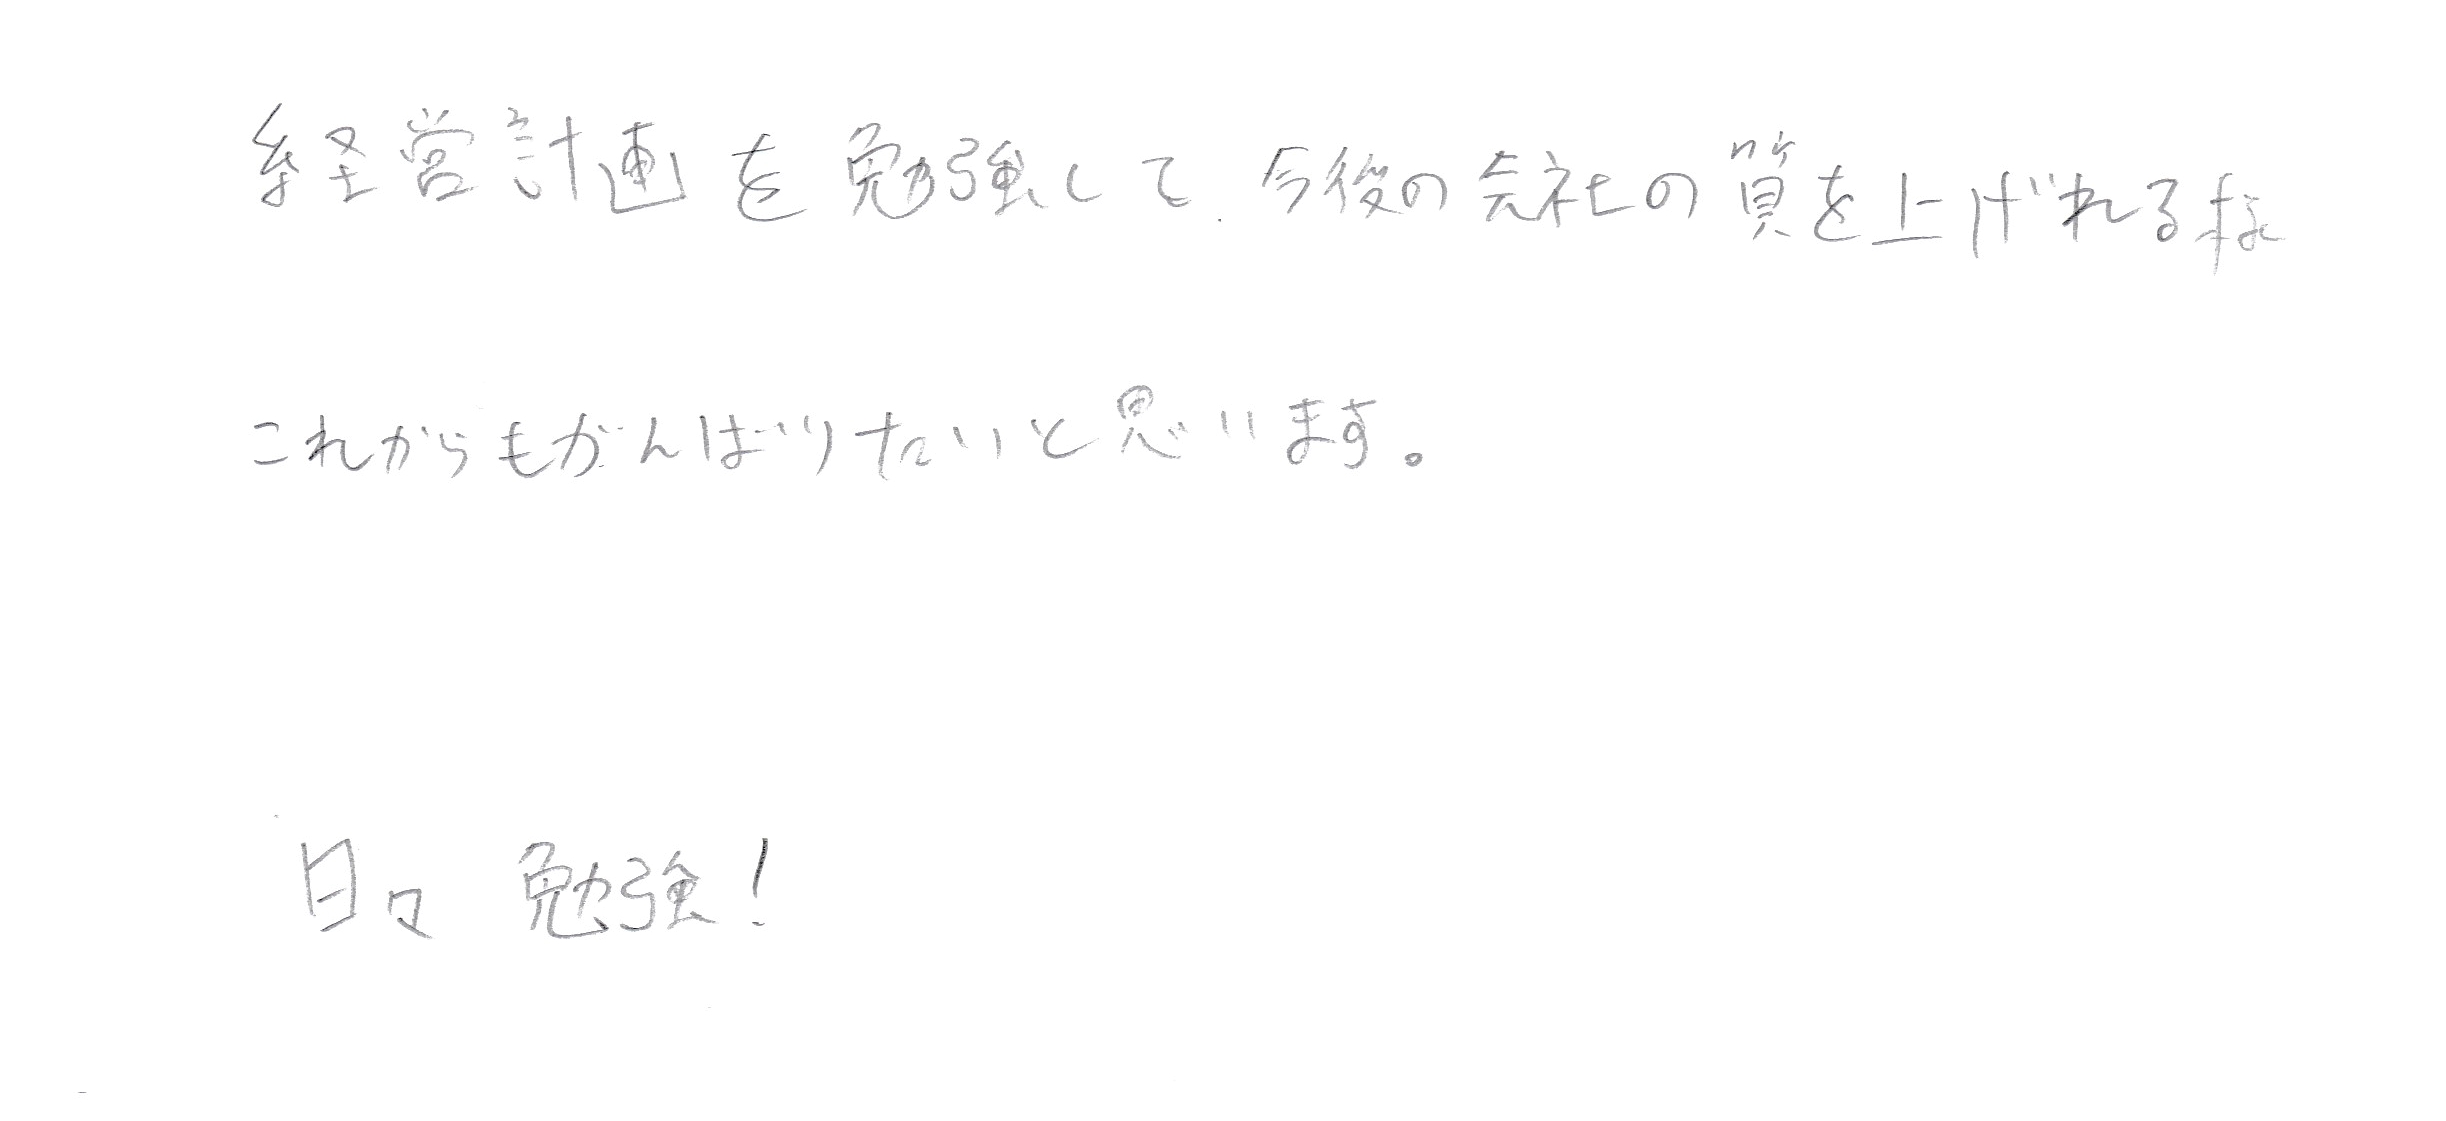 経営計画を勉強して、今後の会社の質を上げれるな
これからもがんばりたいと思います。
日々 勉強!